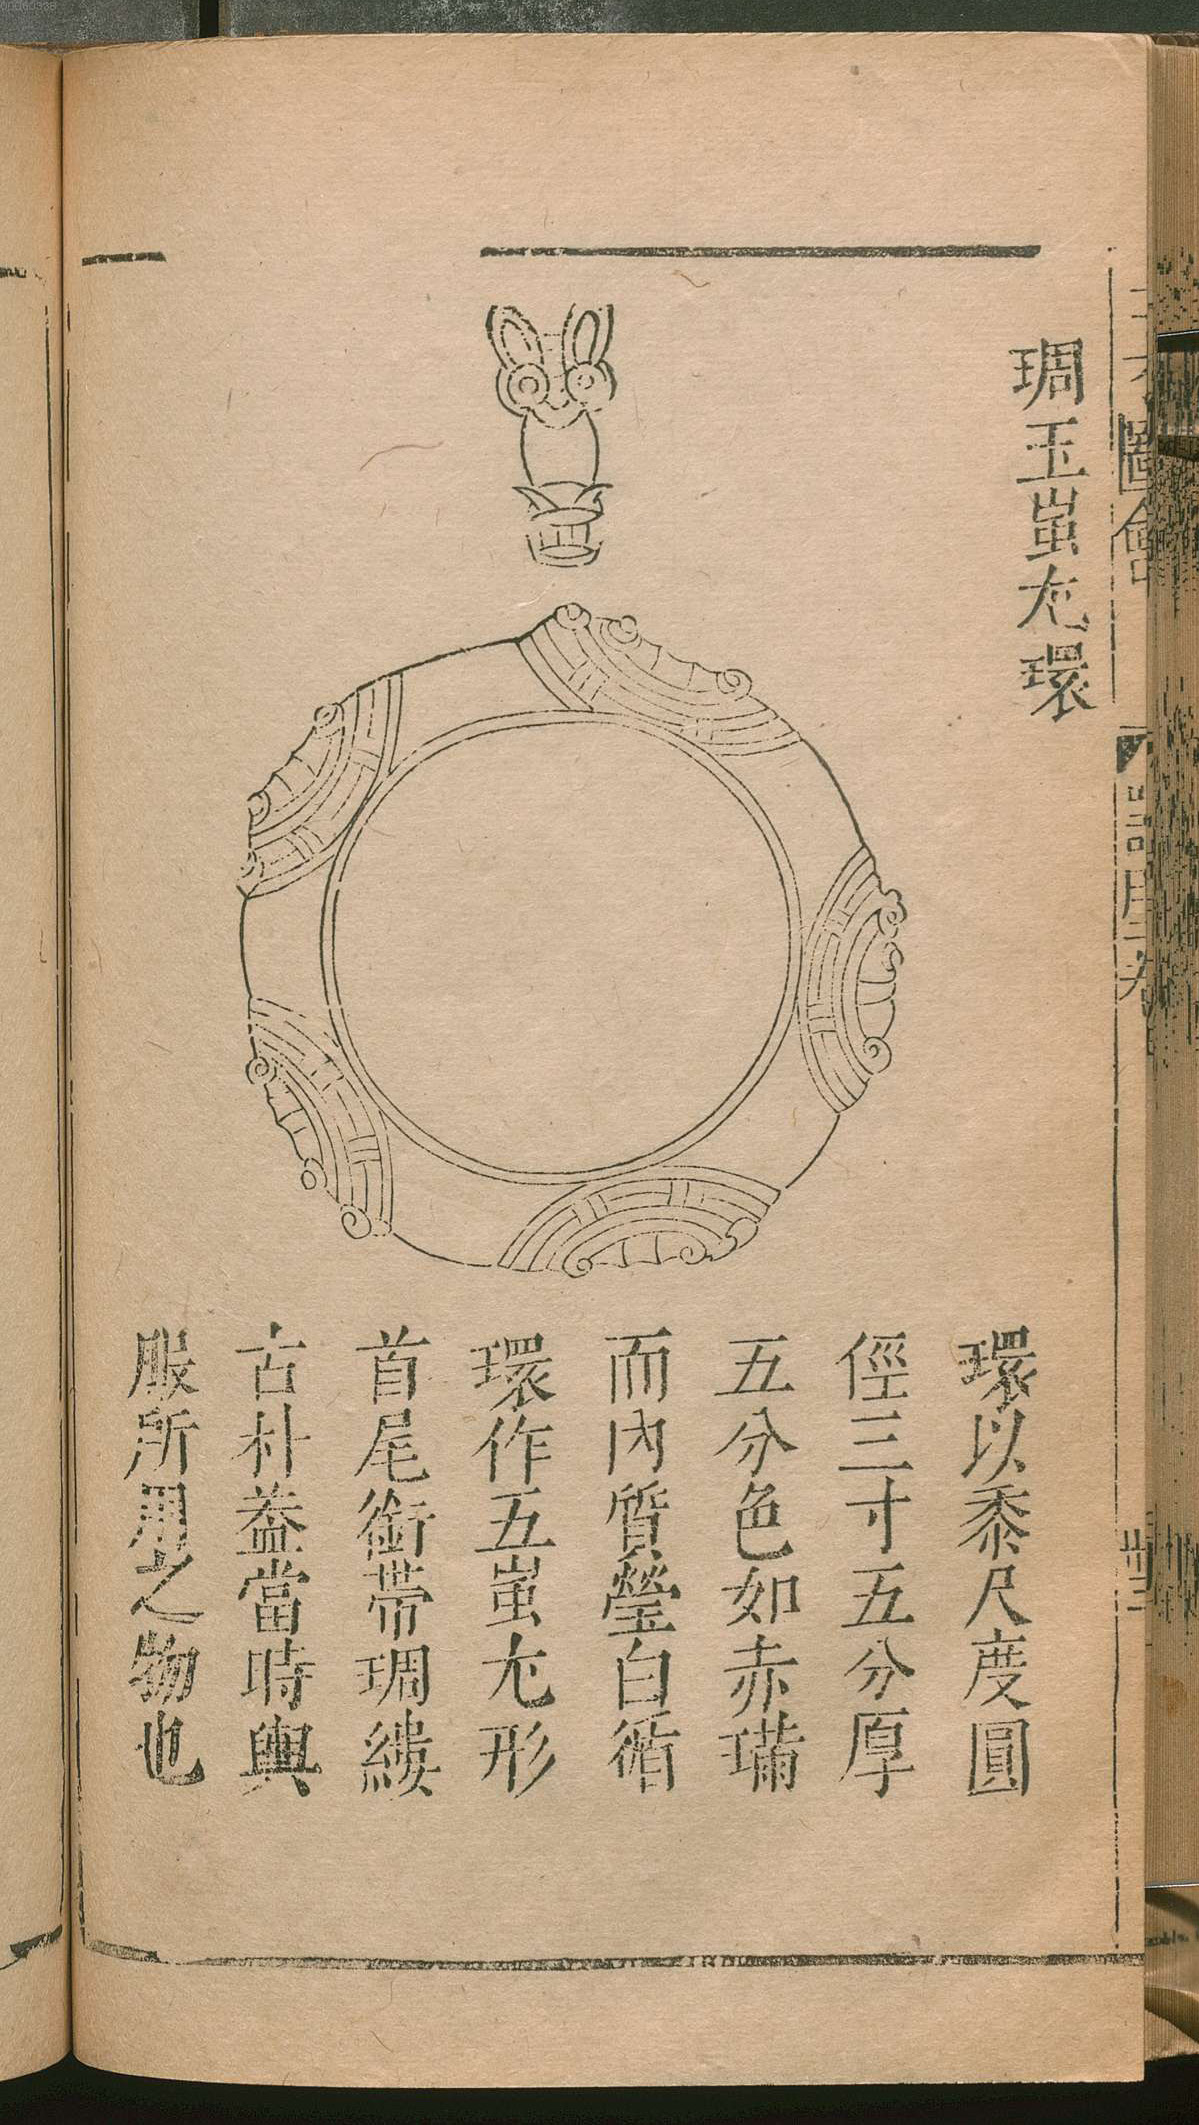 琱玉蚩尤環
環以黍尺度圓
徑三寸五分厚
五分色如赤璊
而內質瑩白循
環作五蚩尤形
首尾銜帶琱縷
古朴葢當時輿
服所用之物也
圖會